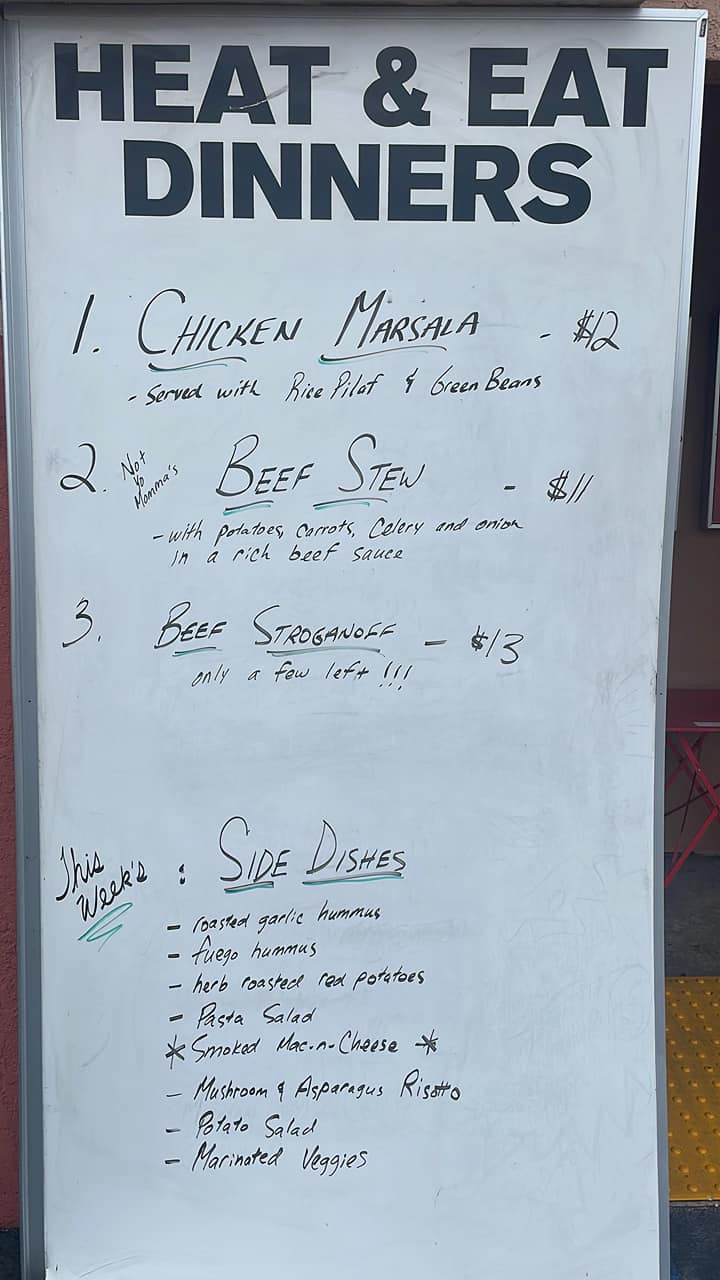 HEAT & EAT
DINNERS
1. CHICKEN MARSALA - $12
- Served with Rice Pilaf & Green Beans
2. Not Yo Momma's BEEF STEW - $11
- with potatoes, carrots, Celery and onion
in a rich beef sauce
3. BEEF STROGANOFF - $13
only a few left !!!
This Week's : SIDE DISHES
- roasted garlic hummus
- fuego hummus
- herb roasted red potatoes
- Pasta Salad
* Smoked Mac-n-Cheese *
- Mushroom & Asparagus Risotto
- Potato Salad
- Marinated Veggies